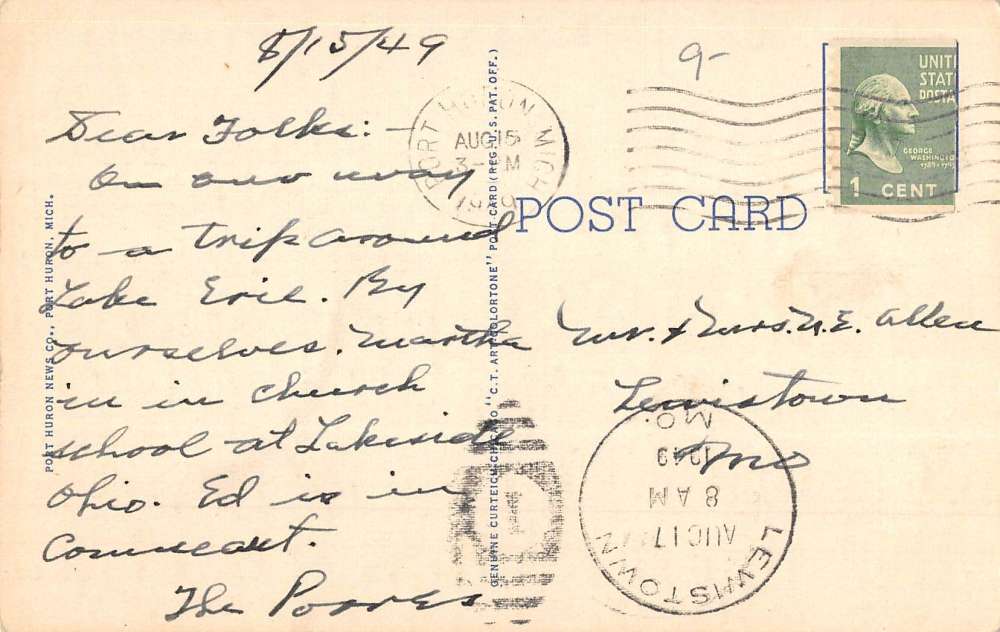 8/15/49
9-
Dear Folks: -
On our way
to a trip around
Lake Erie. By
ourselves. Martha
in in church
school at Lakeside
Ohio. Ed is in
Conneaut.
The
PORT HURON NEWS CO., PORT HURON, MICH.
GENUINE CURTEICH-CHICAGO "C.T. ART-COLORTONE" POST CARD (REG. U.S. PAT. OFF.)
PORT HURON MICH
AUG 15
3- M
1949
UNITE
STAT
POSTA
GEORGE
WASHINGTO
1789-1797
1 CENT
POST CARD
Mr. & Mrs. N. E. Allen
Lewistown
Mo
LEWISTOWN
AUG 17
8 AM
1949
MO.